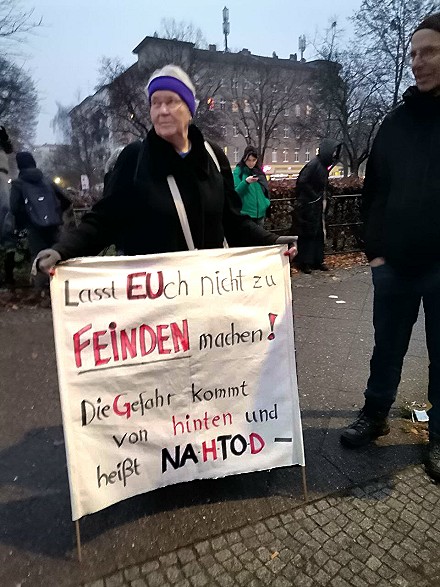 Lasst EUch nicht zu
FEINDEN machen!
Die Gefahr kommt
von hinten und
heißt NA·H·TO·D –